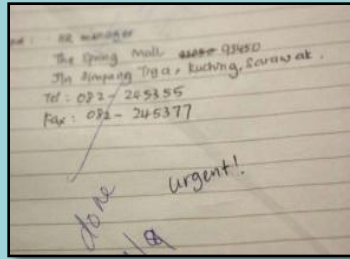 HR manager
The Spring Mall 93450
Jln Simpang Tiga, Kuching, Sarawak.
Tel: 082-245355
Fax: 082-245377
urgent!
done